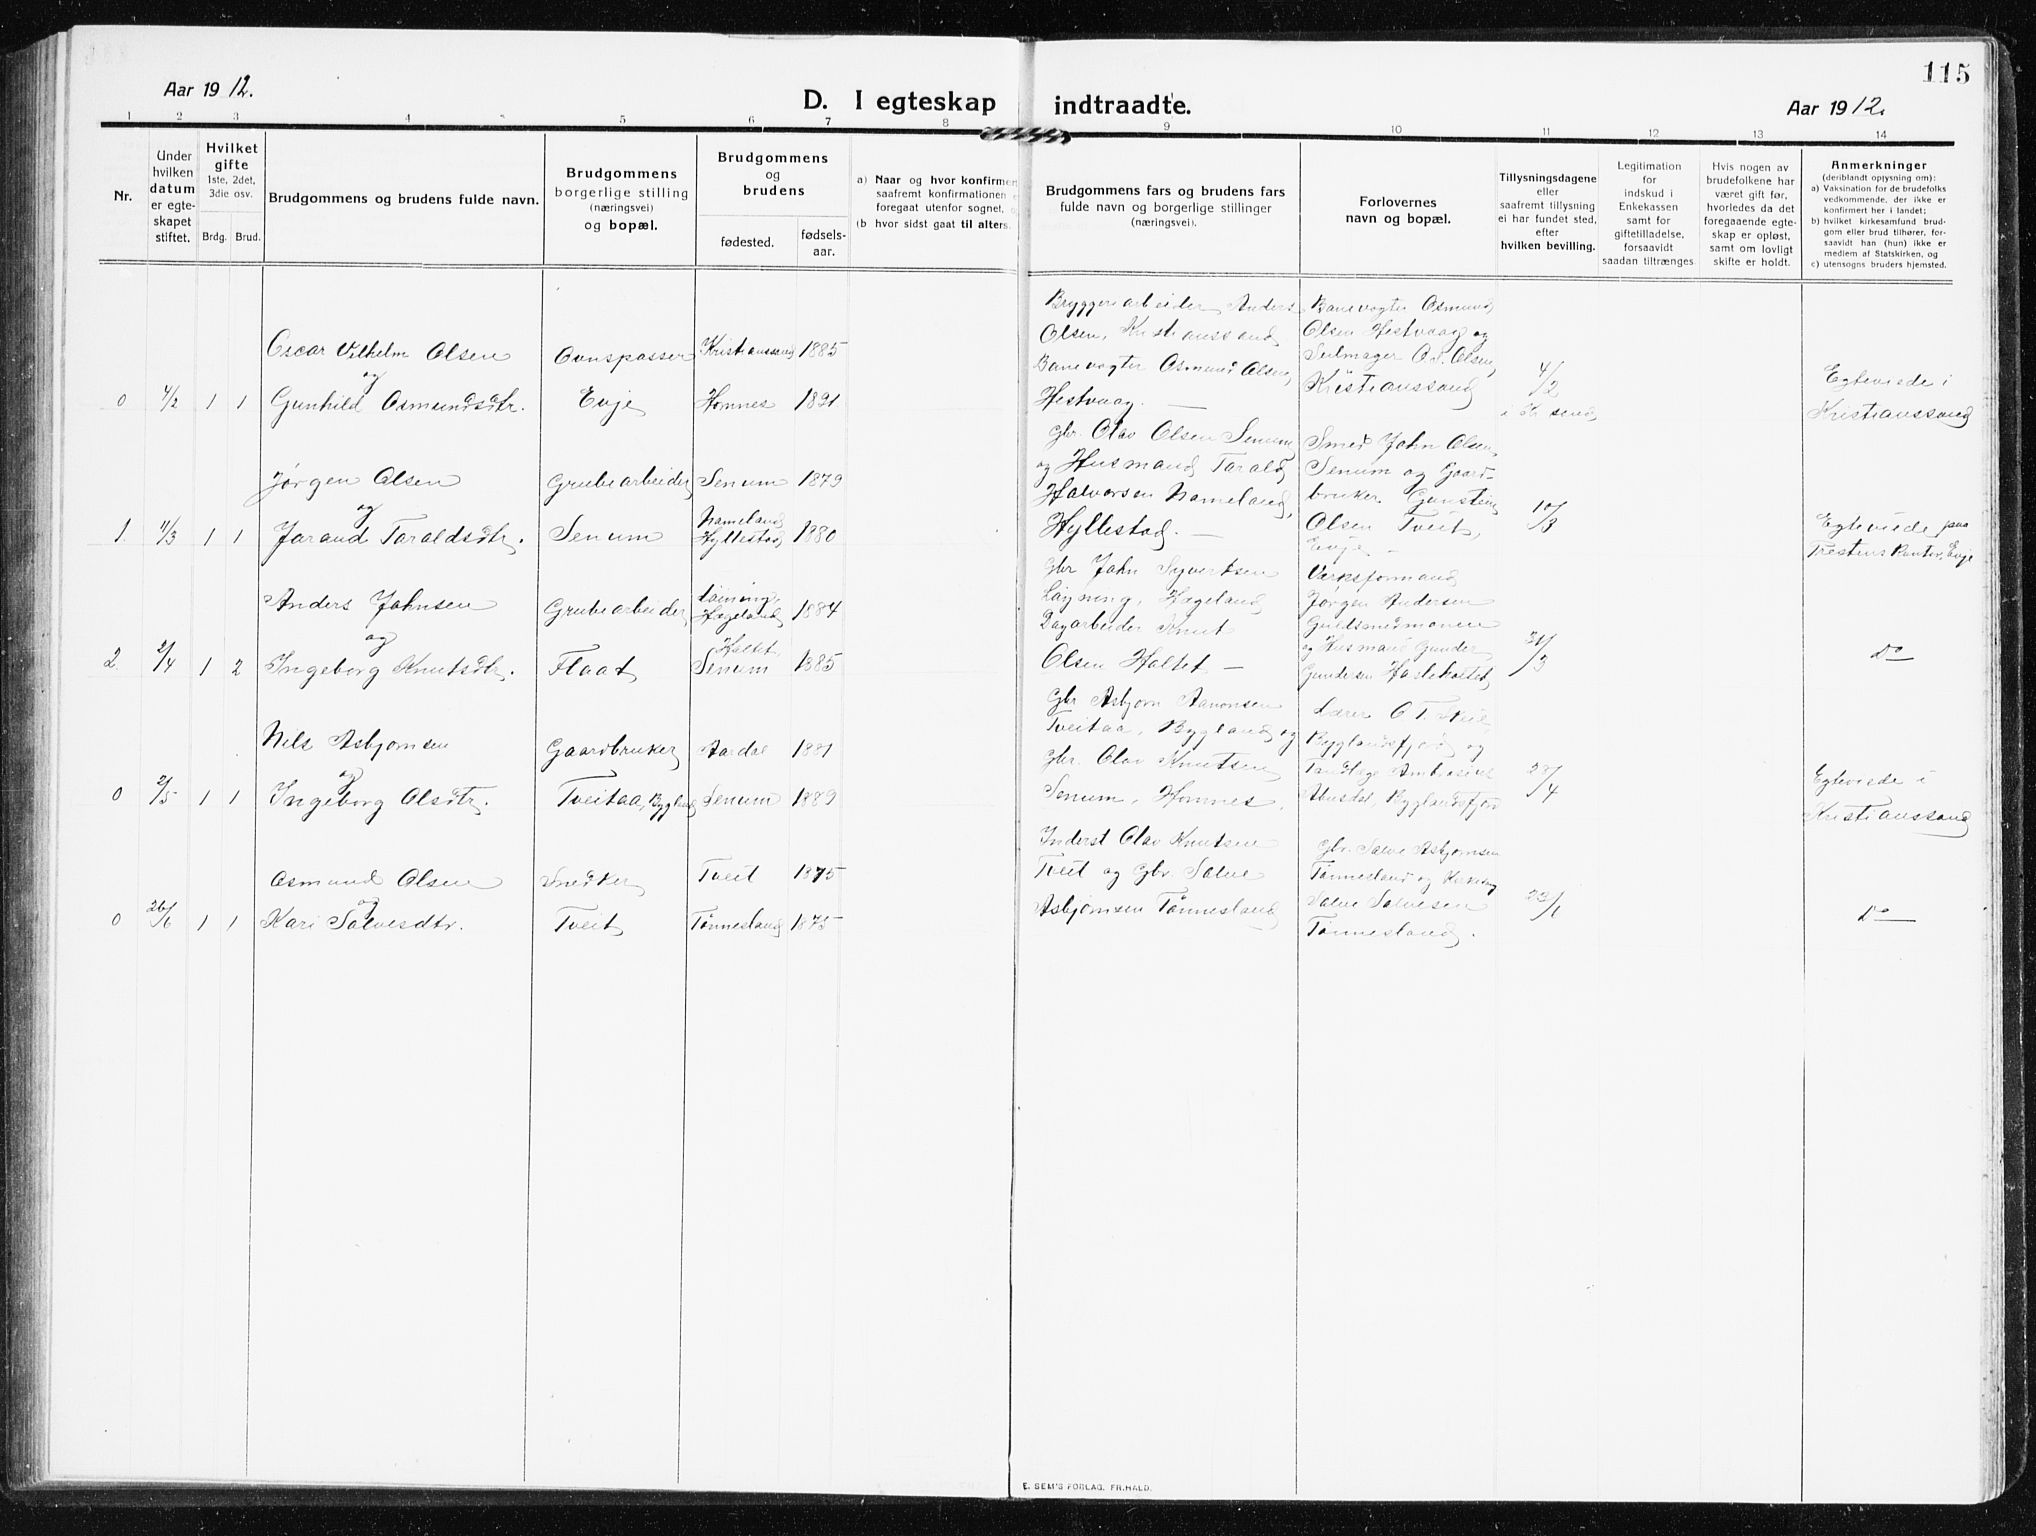 115
Aar 1912.
D. I egteskap indtraadte.
Aar 1912.
1 2 3 4 5 6 7 8 9 10 11 12 13 14
Nr.
Under hvilken datum er egteskapet stiftet.
Hvilket gifte 1ste, 2det, 3die osv.
Brdg. Brud.
Brudgommens og brudens fulde navn.
Brudgommens borgerlige stilling (næringsvei) og bopæl.
Brudgommens og brudens
fødested.
fødselsaar.
a) Naar og hvor konfirmert
saafremt konfirmationen
foregaat utenfor sognet,
(b hvor sidst gaat til alters.
Brudgommens fars og brudens fars
fulde navn og borgerlige stillinger
(næringsvei).
Forlovernes
navn og bopæl.
Tillysningsdagene
eller
saafremt tillysning
ei har fundet sted,
efter
hvilken bevilling.
Legitimation
for
indskud i
Enkekassen
samt for
giftetilladelse,
forsaavidt
saadan tiltrænges
Hvis nogen av
brudefolkene har
været gift før,
hvorledes da det
foregaaende egteskap er opløst,
samt om lovligt
skifte er holdt.
Anmerkninger
(deriblandt oplysning om):
a) Vaksination for de brudefolks
vedkommende, der ikke er
konfirmert her i landet;
b) hvilket kirkesamfund brudgom eller brud tilhører, forsaavidt han (hun) ikke er
medlem af Statskirken, og
c) utensogns bruders hjemsted.
Oscar Vilhelm Olsen
og
0 4/2 1 1 Gunhild Osmundsdtr.
Ovnspasser
Evje
Kristianssand 1885
Homnes 1891
Bryggeriarbeider Anders
Olsen, Kristianssand
Banevogter Osmund Olsen,
Hestvaag. —
Banevogter Osmund
Olsen Hestvaag og
Seilmager O. S. Olsen,
Kristianssand
4/2
i Kr sand
Egteviede i
Kristianssand
Jørgen Olsen
og
1. 4/3 1 1 Jorand Taraldsdtr.
Grubearbeider
Senum
Senum 1879
Nameland
Hyllestad 1880
Gbr. Olav Olsen Senum
og Husmand Tarald
Halvorsen Nameland,
Hyllestad. —
Smed John Olsen,
Senum og Gaard-
bruker Gunstein
Olsen Tveit,
Evje —
10/3
Egteviede paa
Prestens Kontor, Evje
Anders Johnsen
og
2. 2/4 1 2 Ingeborg Knutsdtr.
Grubearbeider
Flaat
Løining,
Hægeland 1884
Haltet,
Senum 1885
Gbr John Syvertsen
Løyning, Hægeland
Dagarbeider Knut
Olsen Haltet —
Værksformand
Jørgen Andersen
Guldsmedmoen
og Husmand Gunder
Gundersen
31/3
Do
Nils Asbjørnsen
og
0 2/5 1 1 Ingeborg Olsdtr.
Gaardbruker
Tveitaa, Bygland
Aardal 1881
Senum 1889
Gbr Asbjørn Aanonsen
Tveitaa, Bygland og
Gbr. Olav Knutsen
Senum, Homnes.
Lærer O T
Byglandsfjord og
Tandlæge Ambrosius
Abusdal, Byglandsfjord
28/4
Egteviede i
Kristianssand
Osmund Olsen
og
0 26/6 1 1 Kari Salvesdtr.
Snedker
Tveit
Tveit 1875
Tønnesland 1875
Inderst Olav Knutsen
Tveit og Gbr Salve
Asbjørnsen Tønnesland
Gbr. Salve Asbjørnsen
Tønnesland og
Salve Salvesen
Tønnesland.
23/6
Do
E. SEM'S FORLAG, FR.HALD.